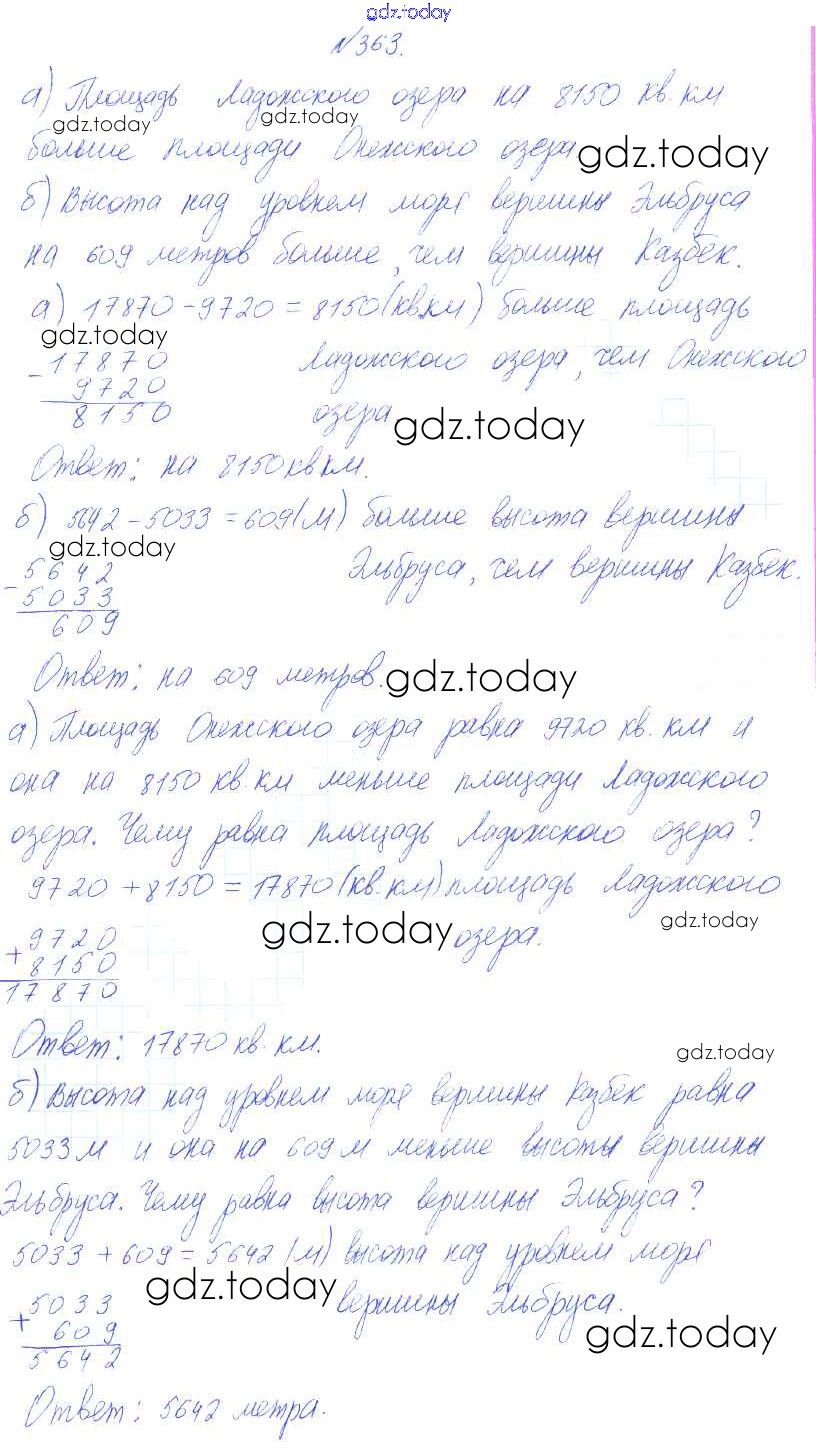 gdz.today
№363.
а) Площадь Ладожского озера на 8150 кв. км
gdz.today gdz.today
больше площади Онежского озера
gdz.today
б) Высота над уровнем моря вершины Эльбруса
на 609 метров больше, чем вершины Казбек.
а) 17870 - 9720 = 8150 (кв.км) больше площадь
gdz.today
- 17870
Ладожского озера, чем Онежского
9720
8150
озера
gdz.today
Ответ: на 8150 кв км.
б) 5642 - 5033 = 609 (м) больше высота вершины
gdz.today
- 5642
Эльбруса, чем вершины Казбек.
5033
609
Ответ: на 609 метров.
gdz.today
а) Площадь Онежского озера равна 9720 кв. км и
она на 8150 кв. км меньше площади Ладожского
озера. Чему равна площадь Ладожского озера?
9720 + 8150 = 17870 (кв. км) площадь Ладожского
gdz.today
+ 9720
gdz.today
озера.
8150
17870
Ответ: 17870 кв. км.
gdz.today
б) Высота над уровнем моря вершины Казбек равна
5033 м и она на 609 м меньше высоты вершины
Эльбруса. Чему равна высота вершины Эльбруса?
5033 + 609 = 5642 (м) высота над уровнем моря
gdz.today
+ 5033
вершины Эльбруса.
609
gdz.today
5642
Ответ: 5642 метра.